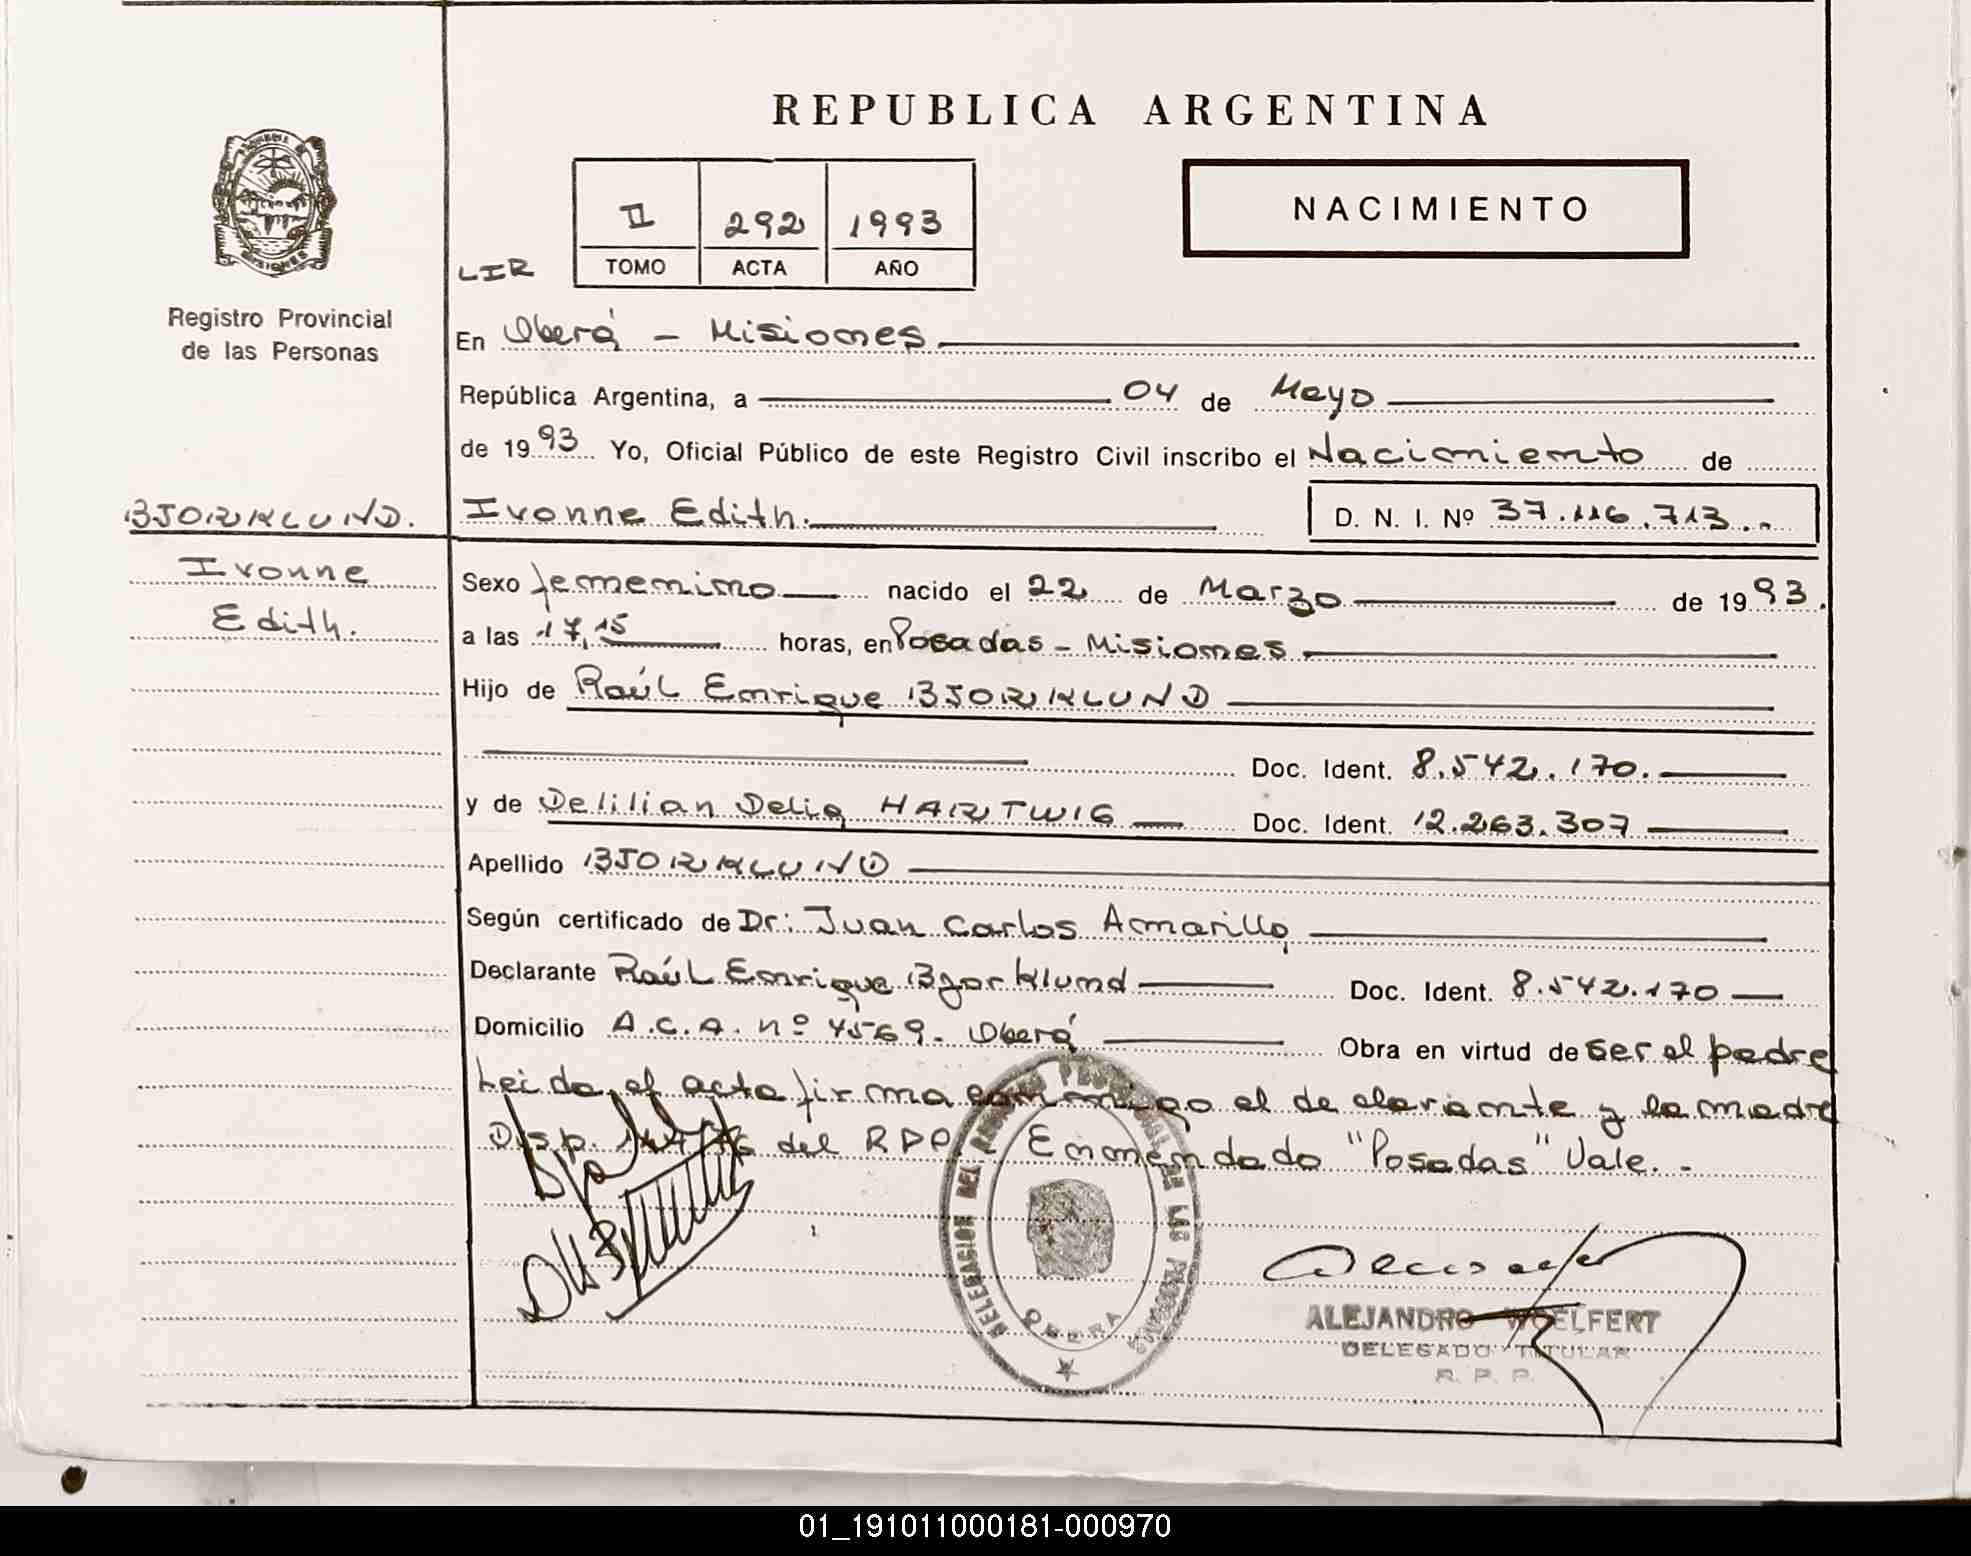 REPUBLICA ARGENTINA
NACIMIENTO
II 292 1993
TOMO ACTA AÑO
LIR
MISIONES
Registro Provincial
de las Personas
En Oberá - Misiones
República Argentina, a 04 de Mayo
de 1993 Yo, Oficial Público de este Registro Civil inscribo el Nacimiento de
BJORKLUND.
Ivonne Edith.
D. N. I. Nº 37.116.713.-
Ivonne
Edith.
Sexo femenino nacido el 22 de Marzo de 1993.
a las 17,15 horas, en Posadas - Misiones.
Hijo de Raúl Enrique BJORKLUND
Doc. Ident. 8.542.170.
y de Delilian Delia HARTWIG Doc. Ident. 12.263.307
Apellido BJORKLUND
Según certificado de Dr: Juan Carlos Amarilla
Declarante Raúl Enrique Bjorklund Doc. Ident. 8.542.170
Domicilio A.C.A. nº 4569. Oberá Obra en virtud de ser el padre
Leida el acta firma conmigo el declarante y la madre
Disp. del RPP. Enmendado "Posadas" Vale.-
DELEGACION DEL REGISTRO PROVINCIAL DE LAS PERSONAS
OBERA
ALEJANDRO WOELFERT
DELEGADO TITULAR
R. P. P.
01_191011000181-000970